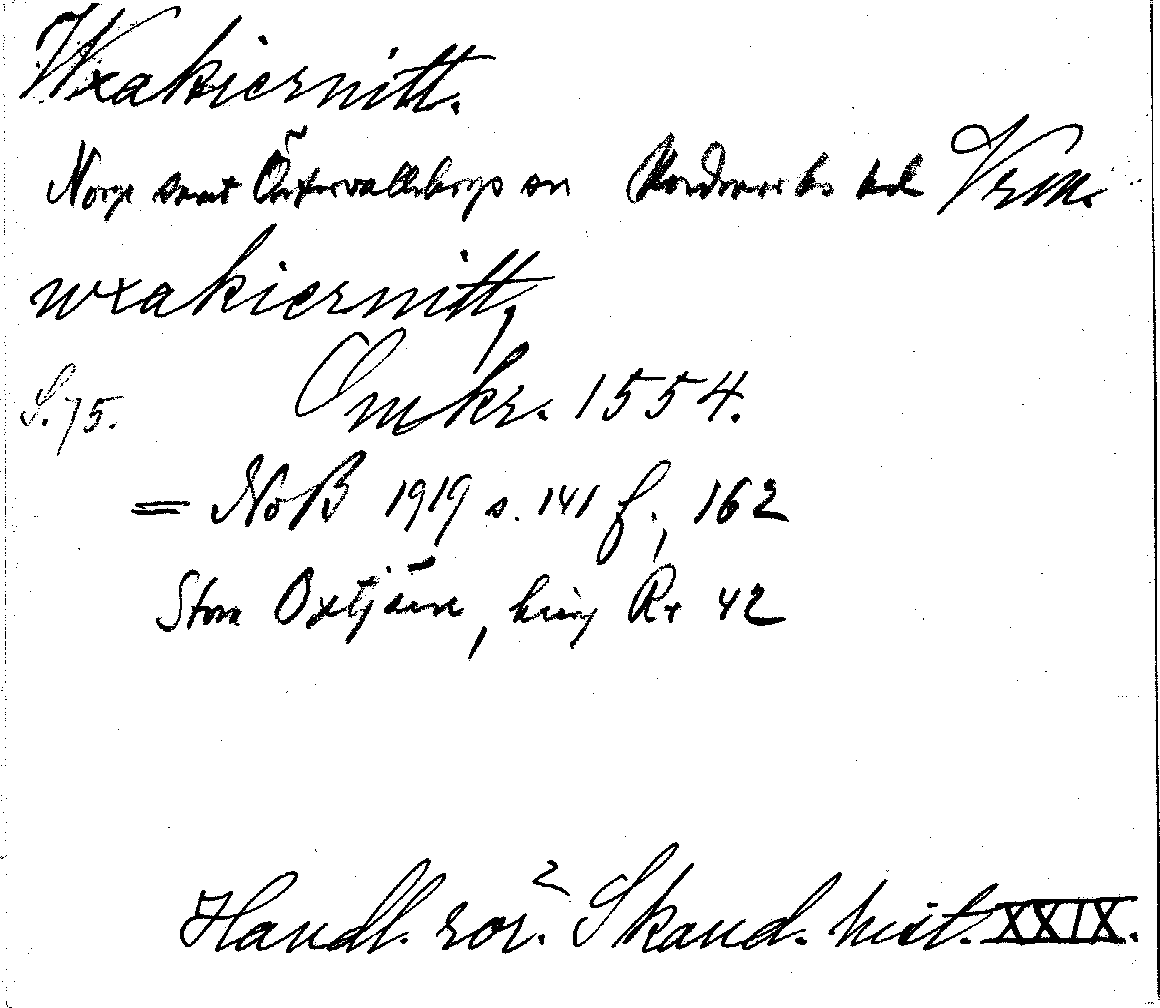 Wxakiernitt.
Norge samt Östervallskogs sn Nordmarks hd Vrm.
wxakiernitt,
S. 75. Omkr. 1554.
= NoB 1919 s. 141 f., 162
Stora Oxtjärn, Rr 42
Handl. rör. Skand. hist. XXIX.